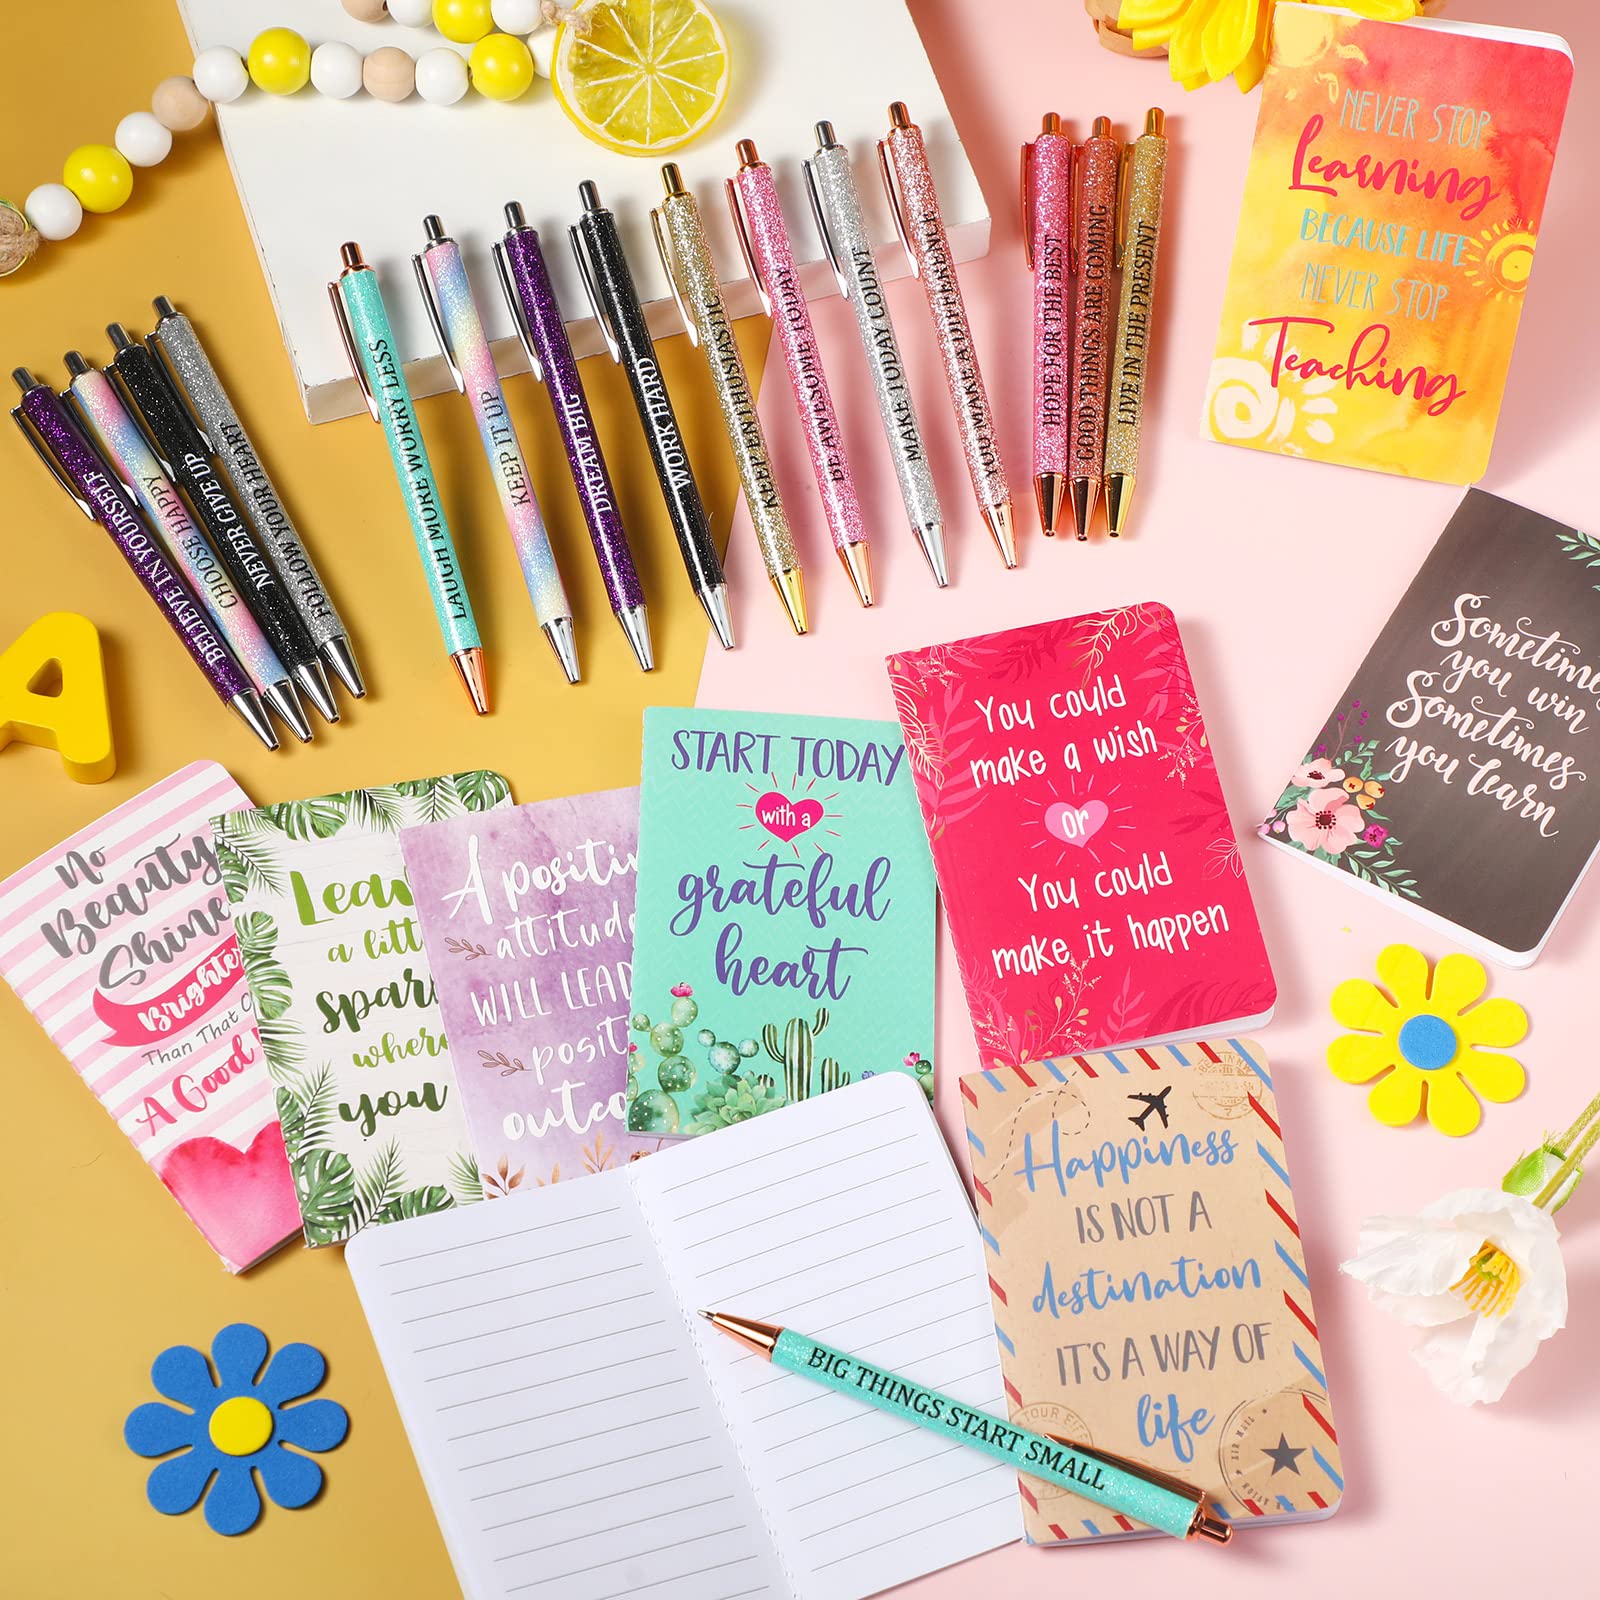 BELIEVE IN YOURSELF
CHOOSE HAPPY
NEVER GIVE UP
FOLLOW YOUR HEART
LAUGH MORE WORRY LESS
KEEP IT UP
DREAM BIG
WORK HARD
KEEP ENTHUSIASTIC
BE AWESOME TODAY
MAKE TODAY COUNT
YOU MAKE A DIFFERENCE
HOPE FOR THE BEST
GOOD THINGS ARE COMING
LIVE IN THE PRESENT
NEVER STOP
Learning
BECAUSE LIFE
NEVER STOP
Teaching
Sometimes
you win
Sometimes
you learn
You could
make a wish
or
You could
make it happen
START TODAY
with a
grateful
heart
A positiv
attitude
WILL LEAD
posit
outco
Leav
a litt
spar
where
you
No
Beauty
Shines
Brighter
Than That O
A Good
Happiness
IS NOT A
destination
IT'S A WAY OF
life
BIG THINGS START SMALL